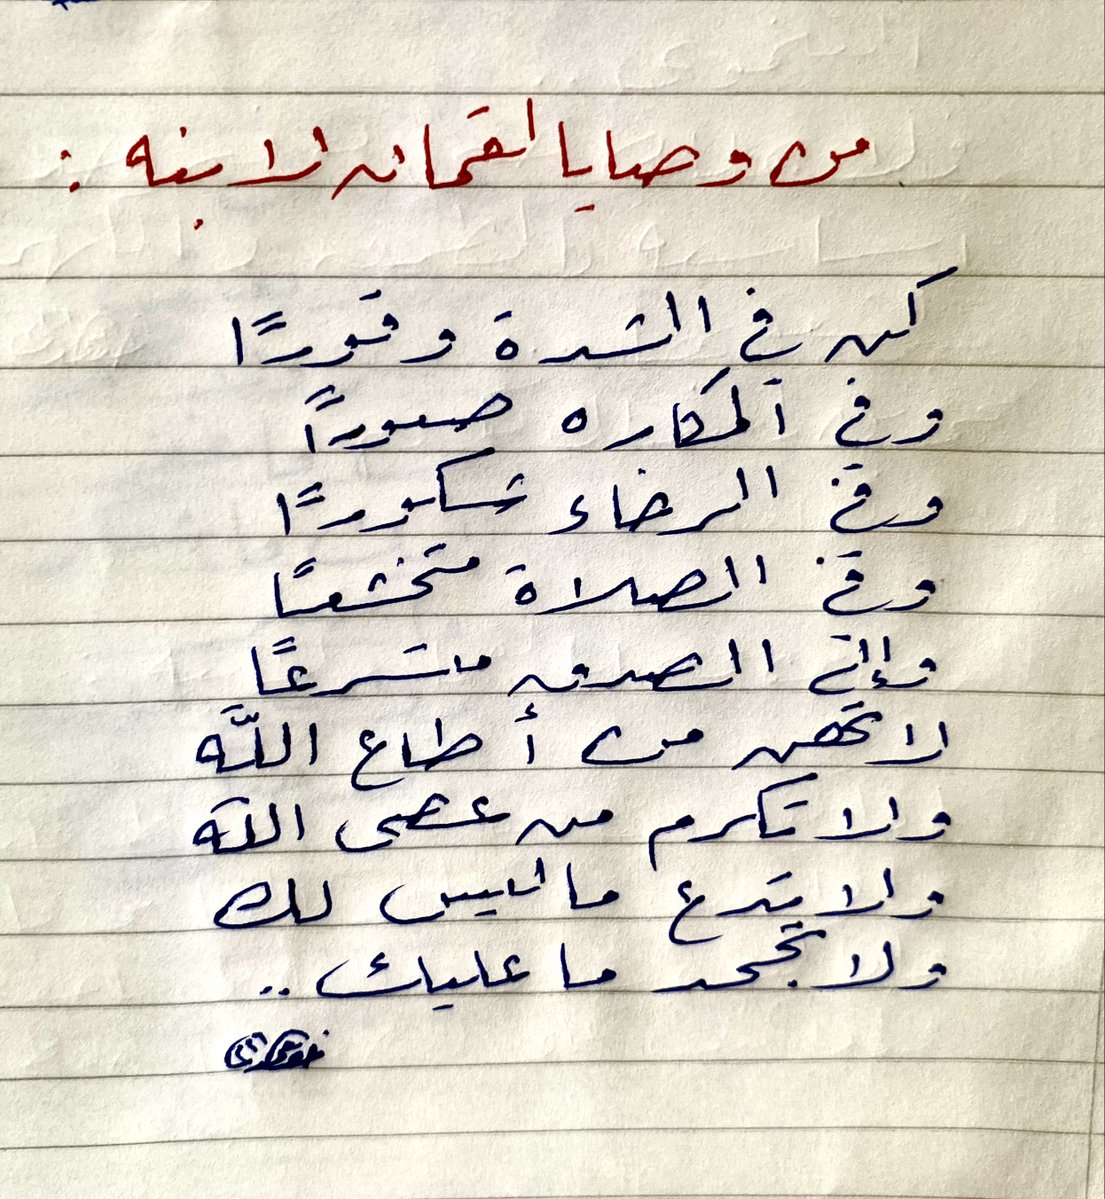 من وصايا لقمان لابنه :
كن في الشدة وقورًا
وفي المكاره صبورًا
وفي الرخاء شكورًا
وفي الصلاة متخشعًا
وإلى الصدق متسرعًا
لا تهن من أطاع اللَّه
ولا تكرم من عصى الله
ولا تدع ما ليس لك
ولا تجحد ما عليك ..